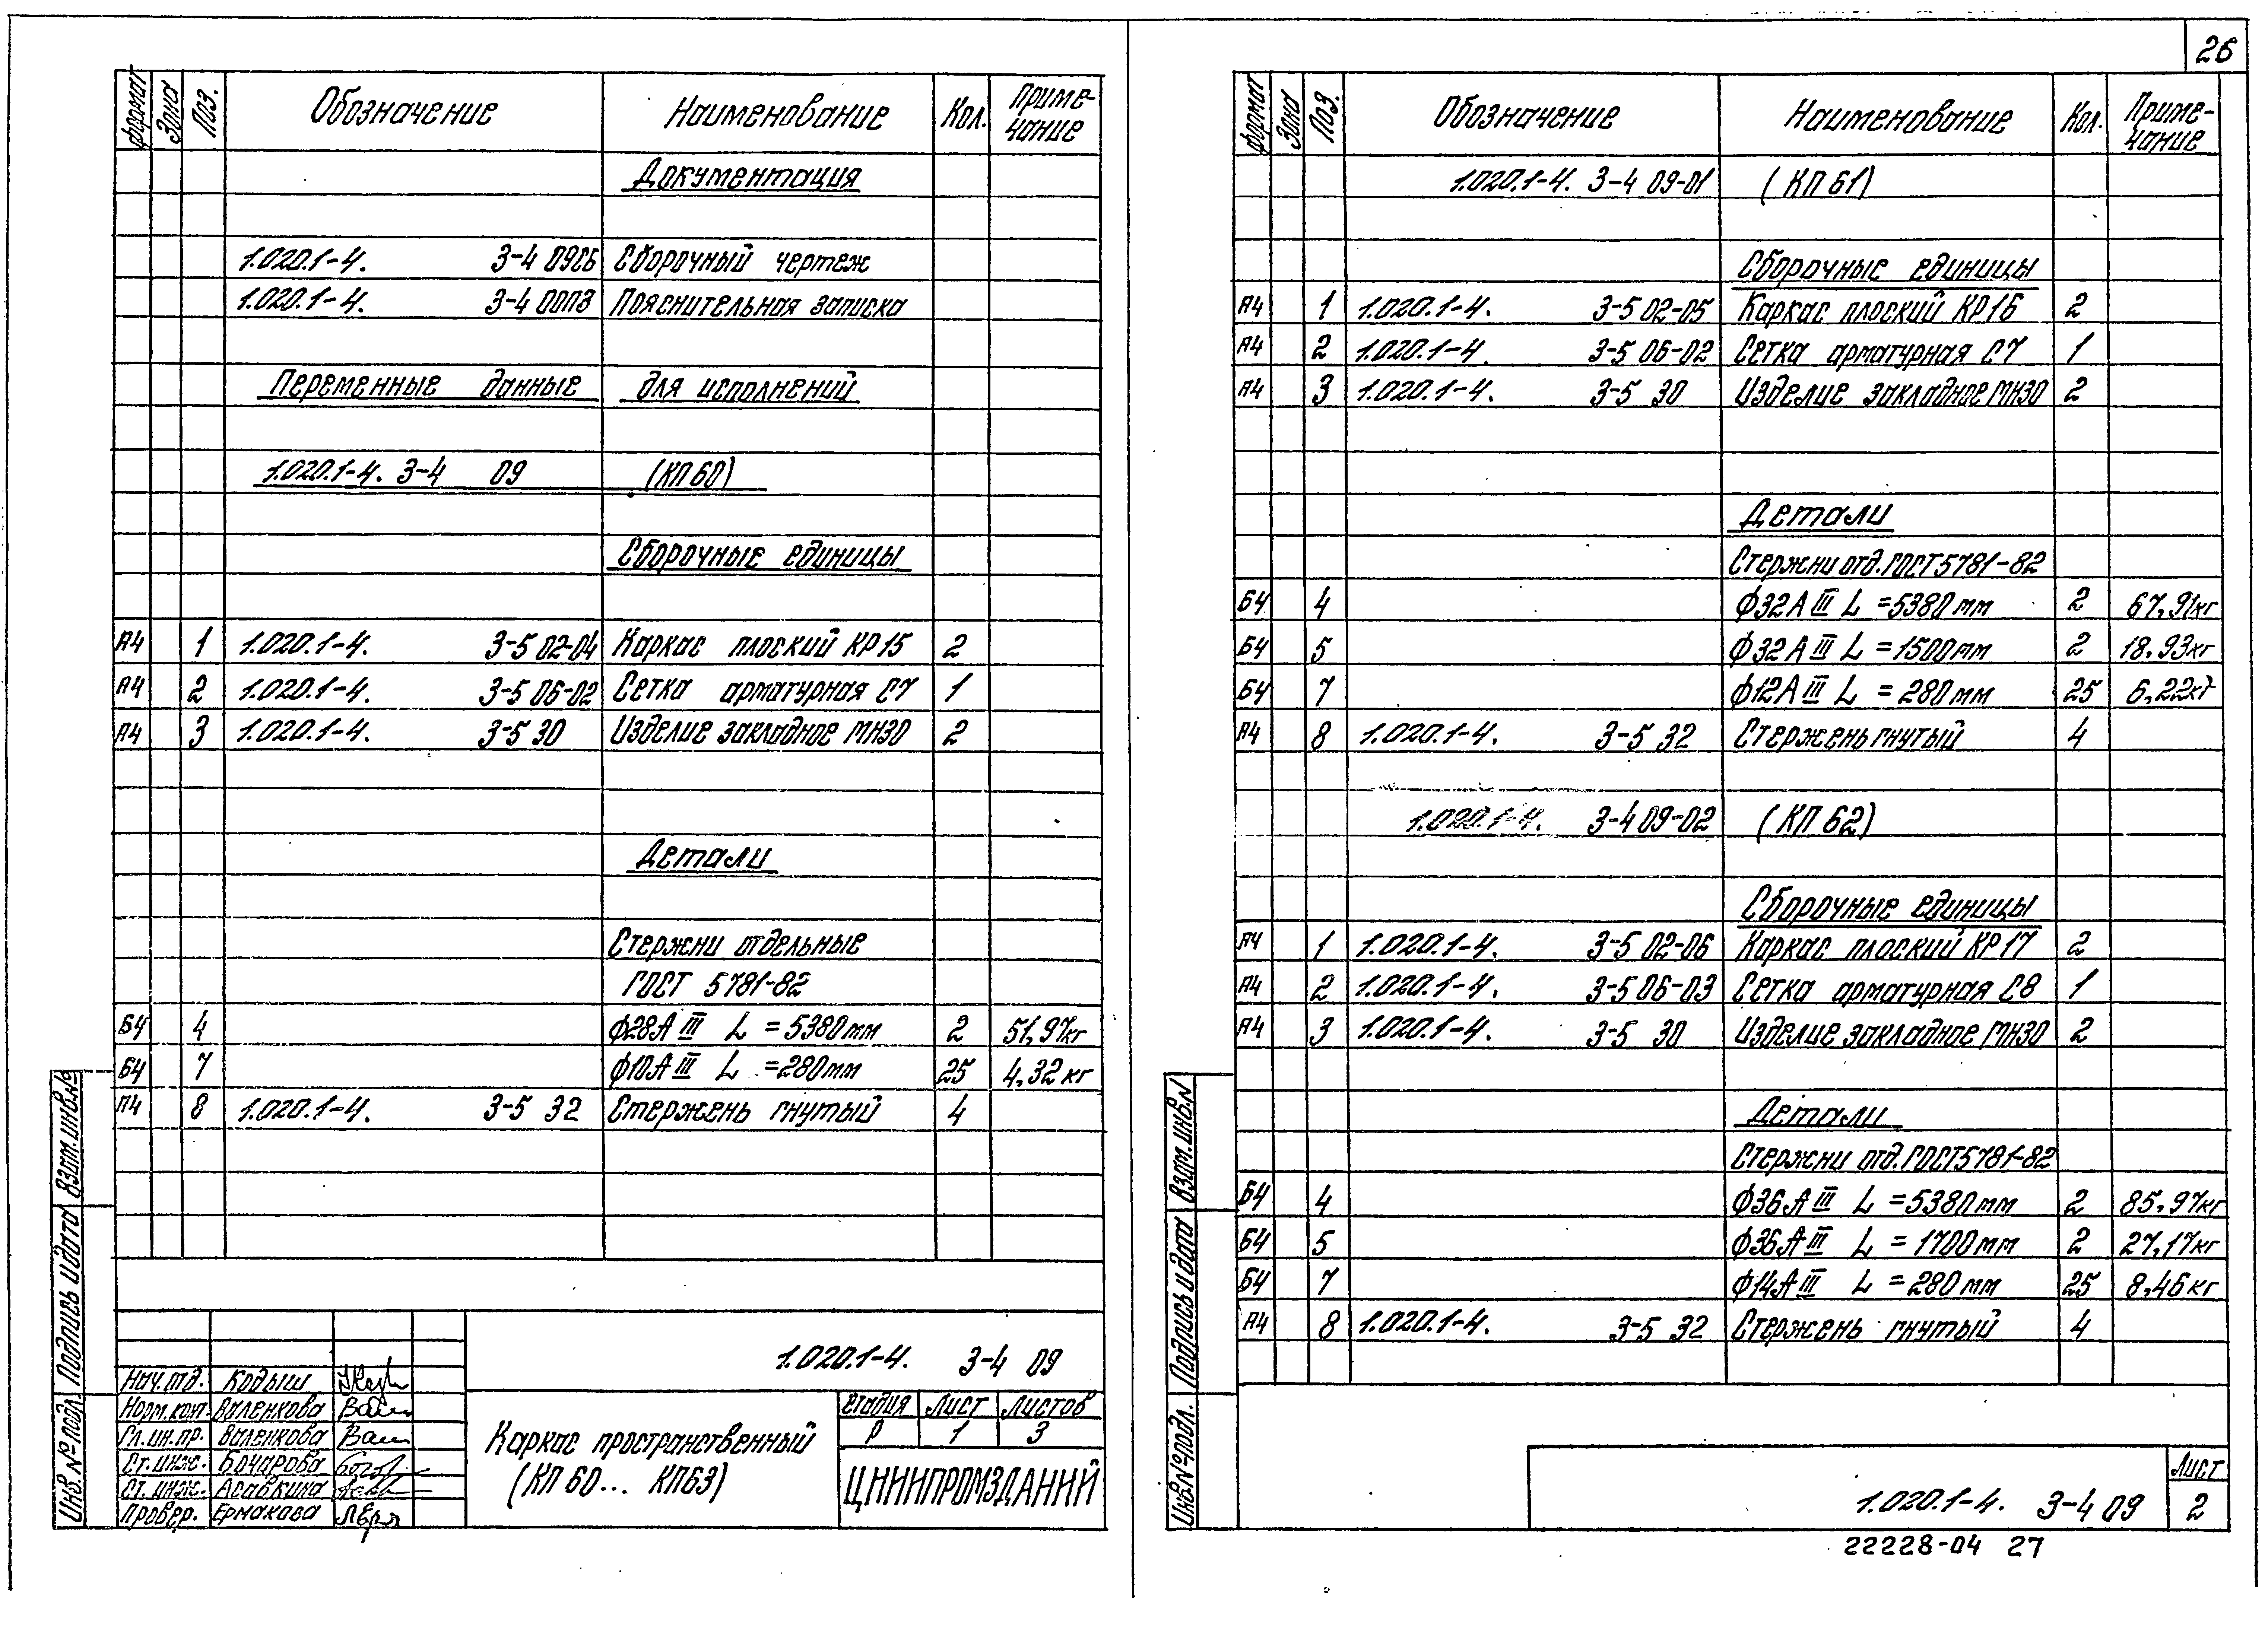 26
Формат Зона Поз. Обозначение Наименование Кол. Приме-чание
Документация
1.020.1-4. 3-4 09СБ Сборочный чертеж
1.020.1-4. 3-4 00ПЗ Пояснительная записка
Переменные данные для исполнений
1.020.1-4. 3-4 09 (КП 60)
Сборочные единицы
А4 1 1.020.1-4. 3-5 02-04 Каркас плоский КР15 2
А4 2 1.020.1-4. 3-5 06-02 Сетка арматурная С7 1
А4 3 1.020.1-4. 3-5 30 Изделие закладное МН30 2
Детали
Стержни отдельные
ГОСТ 5781-82
Б4 4 ф28АIII L =5380мм 2 51,97кг
Б4 7 ф10АIII L =280мм 25 4,32кг
А4 8 1.020.1-4. 3-5 32 Стержень гнутый 4
Взам.инв.№
Подпись и дата
Инв.№подл.
1.020.1-4. 3-4 09
Нач.отд. Кодыш
Норм.кон. Валенкова
Гл.ин.пр. Валенкова
Ст.инж. Бочарова
Ст.инж. Асавкина
Провер. Ермакова
Каркас пространственный
(КП 60... КП63)
Стадия Лист Листов
Р 1 3
ЦНИИПРОМЗДАНИЙ
Формат Зона Поз. Обозначение Наименование Кол. Приме-чание
1.020.1-4. 3-4 09-01 (КП 61)
Сборочные единицы
А4 1 1.020.1-4. 3-5 02-05 Каркас плоский КР16 2
А4 2 1.020.1-4. 3-5 06-02 Сетка арматурная С7 1
А4 3 1.020.1-4. 3-5 30 Изделие закладное МН30 2
Детали
Стержни отд.ГОСТ5781-82
Б4 4 ф32АIII L =5380мм 2 67,91кг
Б4 5 ф32АIII L =1500мм 2 18,93кг
Б4 7 ф12АIII L =280мм 25 6,22кг
А4 8 1.020.1-4. 3-5 32 Стержень гнутый 4
1.020.1-4. 3-4 09-02 (КП 62)
Сборочные единицы
А4 1 1.020.1-4. 3-5 02-06 Каркас плоский КР17 2
А4 2 1.020.1-4. 3-5 06-03 Сетка арматурная С8 1
А4 3 1.020.1-4. 3-5 30 Изделие закладное МН30 2
Детали
Стержни отд.ГОСТ5781-82
Б4 4 ф36АIII L =5380мм 2 85,97кг
Б4 5 ф36АIII L =1700мм 2 27,17кг
Б4 7 ф14АIII L =280мм 25 8,46кг
А4 8 1.020.1-4. 3-5 32 Стержень гнутый 4
Взам.инв.№
Подпись и дата
Инв.№подл.
1.020.1-4. 3-4 09
Лист
2
22228-04 27